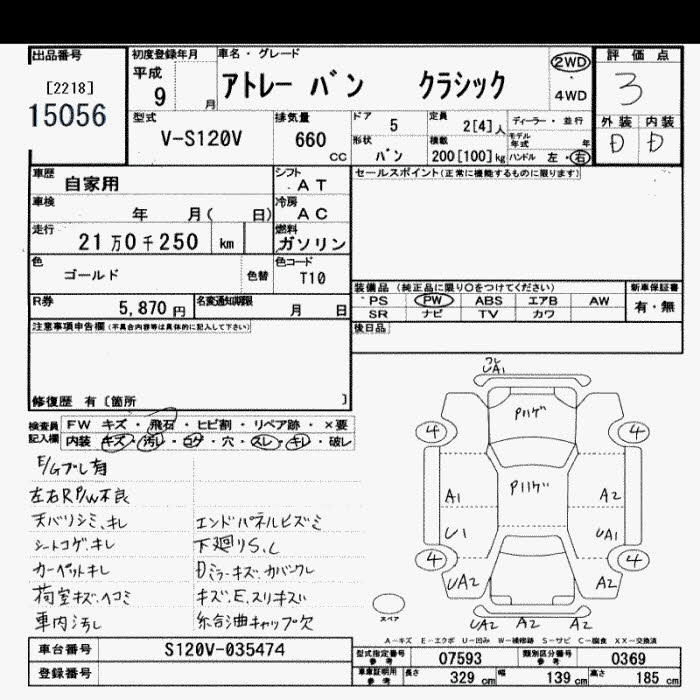 出品番号
[2218]
15056
初度登録年月
平成
9 月
車名・グレード
アトレー バン クラシック
2WD
・
4WD
評価点
3
外装 内装
D D
型式
V-S120V
排気量
660
CC
ドア
5
形状
バン
定員
2[4]人
積載
200[100]kg
ディーラー・並行
モデル年式 年
ハンドル 左・右
車歴
自家用
シフト
AT
車検
年 月( 日)
冷房
AC
走行
21万0千250 km
燃料
ガソリン
色
ゴールド
色替
色コード
T10
R券
5,870円
名変通知期限
月 日
セールスポイント(正常に機能するものに限ります)
装備品(純正品に限り○をつけてください)
PS PW ABS エアB AW
SR ナビ TV カワ
新車保証書
有・無
後日品
注意事項申告欄(不具合内容等は具体的に記入して下さい)
修復歴 有〔箇所 〕
検査員
記入欄
FW キズ・飛石・ヒビ割・リペア跡・×要
内装 キズ・汚レ・コゲ・穴・スレ・キレ・破レ
E/Gブレ有
左右RP/W不良
天バリシミ、キレ
シートコゲ、キレ
カーペットキレ
荷室キズ、ヘコミ
車内汚レ
エンドパネルヒズミ
下廻りS、C
Dミラーキズ、カバワレ
キズ、E、スリキズ
給油キャップ欠
UA1
Pハゲ
4 4
Pハゲ
A1 A2
U1 UA1
4 4
UA2 A2
UA2 A2 A2
スペア
A-キズ E-エクボ U-凹み W-補修跡 S-サビ C-腐食 XX-交換済
車台番号
S120V-035474
登録番号
型式指定番号
参考
07593
類別区分番号
参考
0369
車庫証明用
参考
長さ 329 cm
幅 139 cm
高さ 185 cm